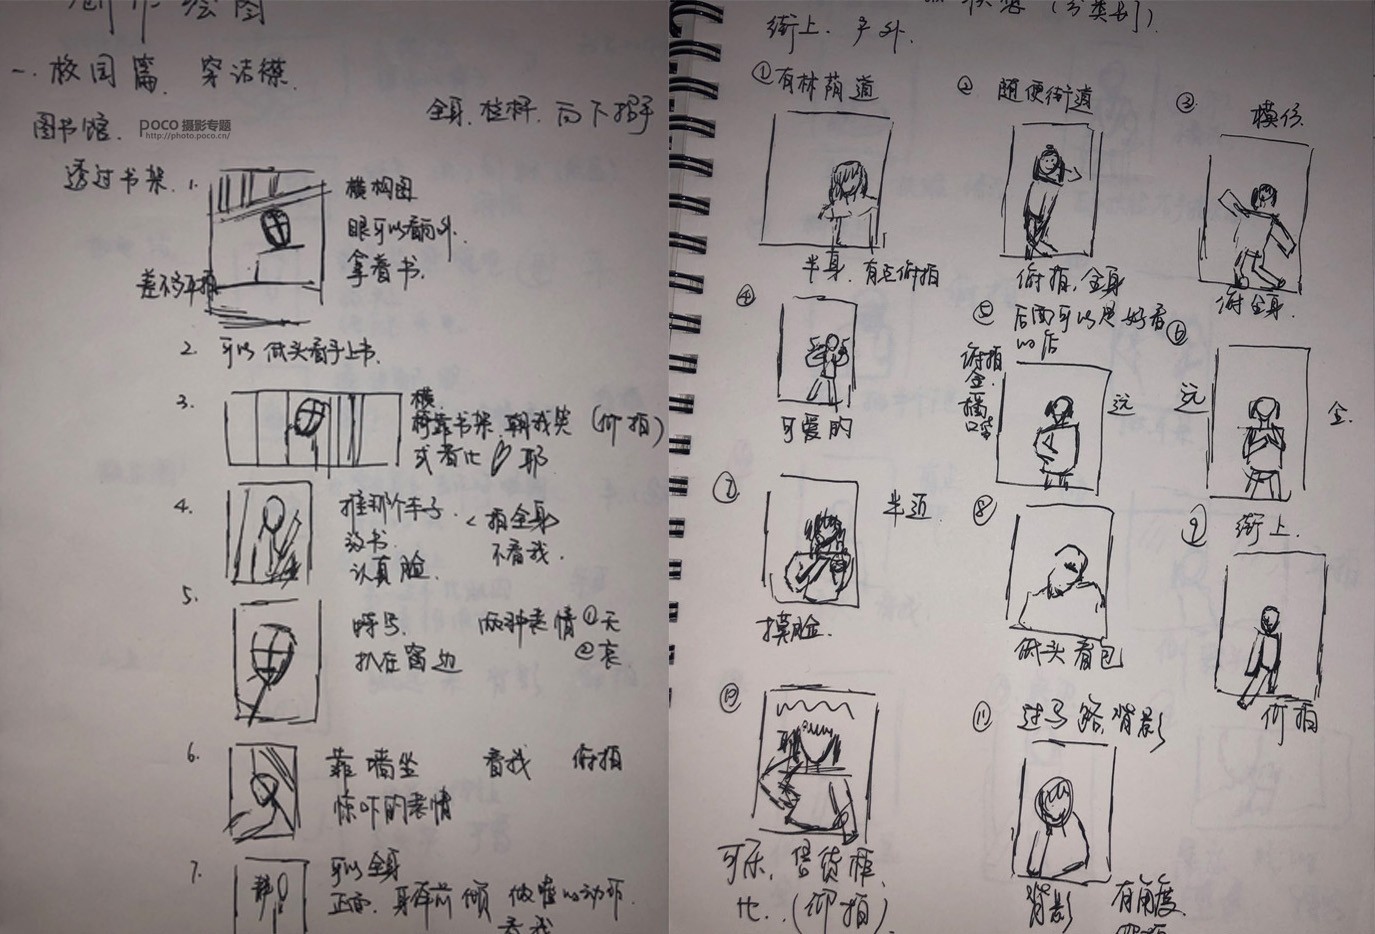 创作绘图
一. 校园篇. 穿
图书馆.
POCO 摄影专题
http://photo.poco.cn/
透过书架. 1.
横构图
眼可以看向外.
拿着书.
差不多平拍
2. 可以 低头看手上书.
3. 横
倚靠书架. 朝我笑 (俯拍)
或者比 耶
4. 推那个车子. <拍全身>
不看我.
认真脸.
5.
两种表情 ①天
趴在窗边 ②哀
6. 靠墙坐 看我 俯拍
惊吓的表情
7. 可以全身
正面. 身体前倾
看我
(分类书).
街上. 户外.
①有林荫道
半身. 有点俯拍
② 随便街道
俯拍. 全身
③ 模仿.
俯全身.
④ 可爱的
⑤ 后面可以是好看
的店
俯拍
全.
远
⑥ 远 全.
⑦ 半近.
摸脸.
⑧ 低头看包
⑨ 街上.
俯拍
⑩
可乐. 售货柜.
比..(仰拍)
⑪ 过马路. 背影
背影
有角度.